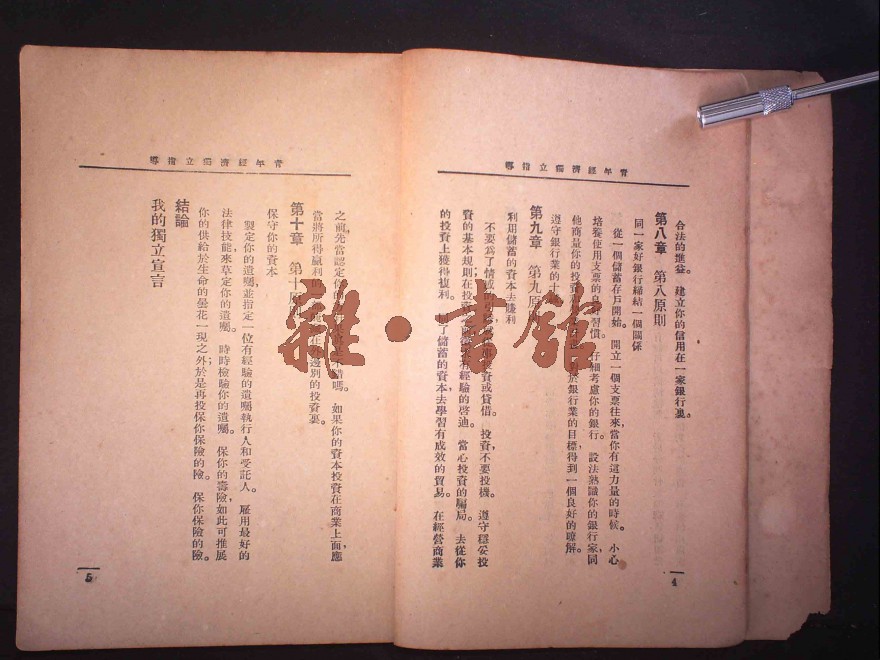 青年經濟獨立指導
合法的進益。 建立你的信用在一家銀行裏。
第八章 第八原則
同一家好銀行締結一個關係
從一個儲蓄存戶開始。 開立一個支票往來,當你有這力量的時候。 小心
培養使用支票的良好習慣。 仔細考慮你的銀行。 設法熟識你的銀行家,同
他商量你的投資 於銀行業的目標,得到一個良好的暸解。
遵守銀行業的十
第九章 第九原
利用儲蓄的資本去賺利
不要爲了情感的 投資或貸借。 投資,不要投機。 遵守穩妥投
資的基本規則在投資 有經驗的啓迪。 當心投資的騙局。 去從你
的投資上獲得複利。 了儲蓄的資本去學習有成效的貿易。 在經營商業
4
青年經濟獨立指導
之前,先當認定你的 不錯嗎。 如果你的資本投資在商業上面,應
當將所得贏利的 在外邊別的投資裏。
第十章 第十原
保守你的資本
製定你的遺囑,並指定一位有經驗的遺囑執行人和受託人。 雇用最好的
法律技能來草定你的遺囑。 時時檢驗你的遺囑。 保你的壽險,如此可推展
你的供給於生命的曇花一現之外,於是再投保你保險的險。 保你保險的險。
結論
我的獨立宣言
5
雜·書館